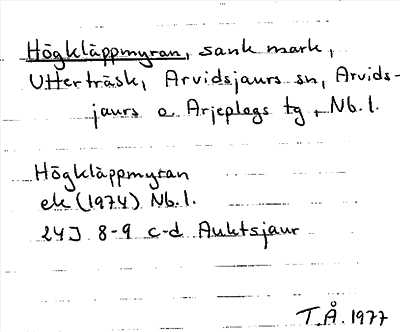 Högkläppmyran, sank mark,
Utterträsk, Arvidsjaurs sn, Arvids-
jaurs o Arjeplogs tg, Nb. l.
Högkläppmyran
ek (1974) Nb. l.
24J 8-9 c-d Auktsjaur
T.Å. 1977